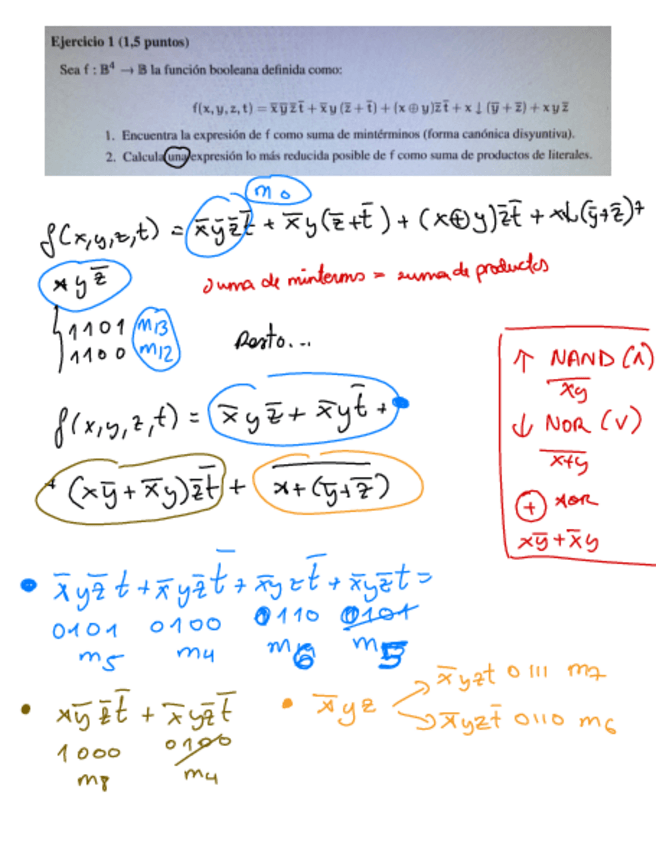 Ejercicio 1 (1,5 puntos)
Sea f : B⁴ → B la función booleana definida como:
f(x, y, z, t) = x̄ ȳ z̄ t̄ + x̄ y (z̄ + t̄) + (x ⊕ y) z̄ t̄ + x ↓ (ȳ + z̄) + x y z̄
1. Encuentra la expresión de f como suma de mintérminos (forma canónica disyuntiva).
2. Calcula una expresión lo más reducida posible de f como suma de productos de literales.
m0
f(x,y,z,t) = x̄ȳz̄t̄ + x̄y(z̄+t̄) + (x⊕y)z̄t̄ + x↓(ȳ+z̄)+
xyz̄
Suma de minterms = suma de productos
1101 m13
1100 m12
Resto...
f(x,y,z,t) = x̄yz̄ + x̄yt̄ +
+ (xȳ+x̄y)z̄t̄ + \overline{x+(ȳ+z̄)}
↑ NAND (∧)
\overline{xy}
↓ NOR (∨)
\overline{x+y}
⊕ XOR
xȳ+x̄y
• x̄yz̄t + x̄yz̄t̄ + x̄yzt̄ + x̄yz̄t =
0101 0100 0110 0101
m5 m4 m6 m5
• xȳz̄t̄ + x̄yz̄t̄
1000 0100
m8 m4
• x̄yz
x̄yzt 0111 m7
x̄yzt̄ 0110 m6